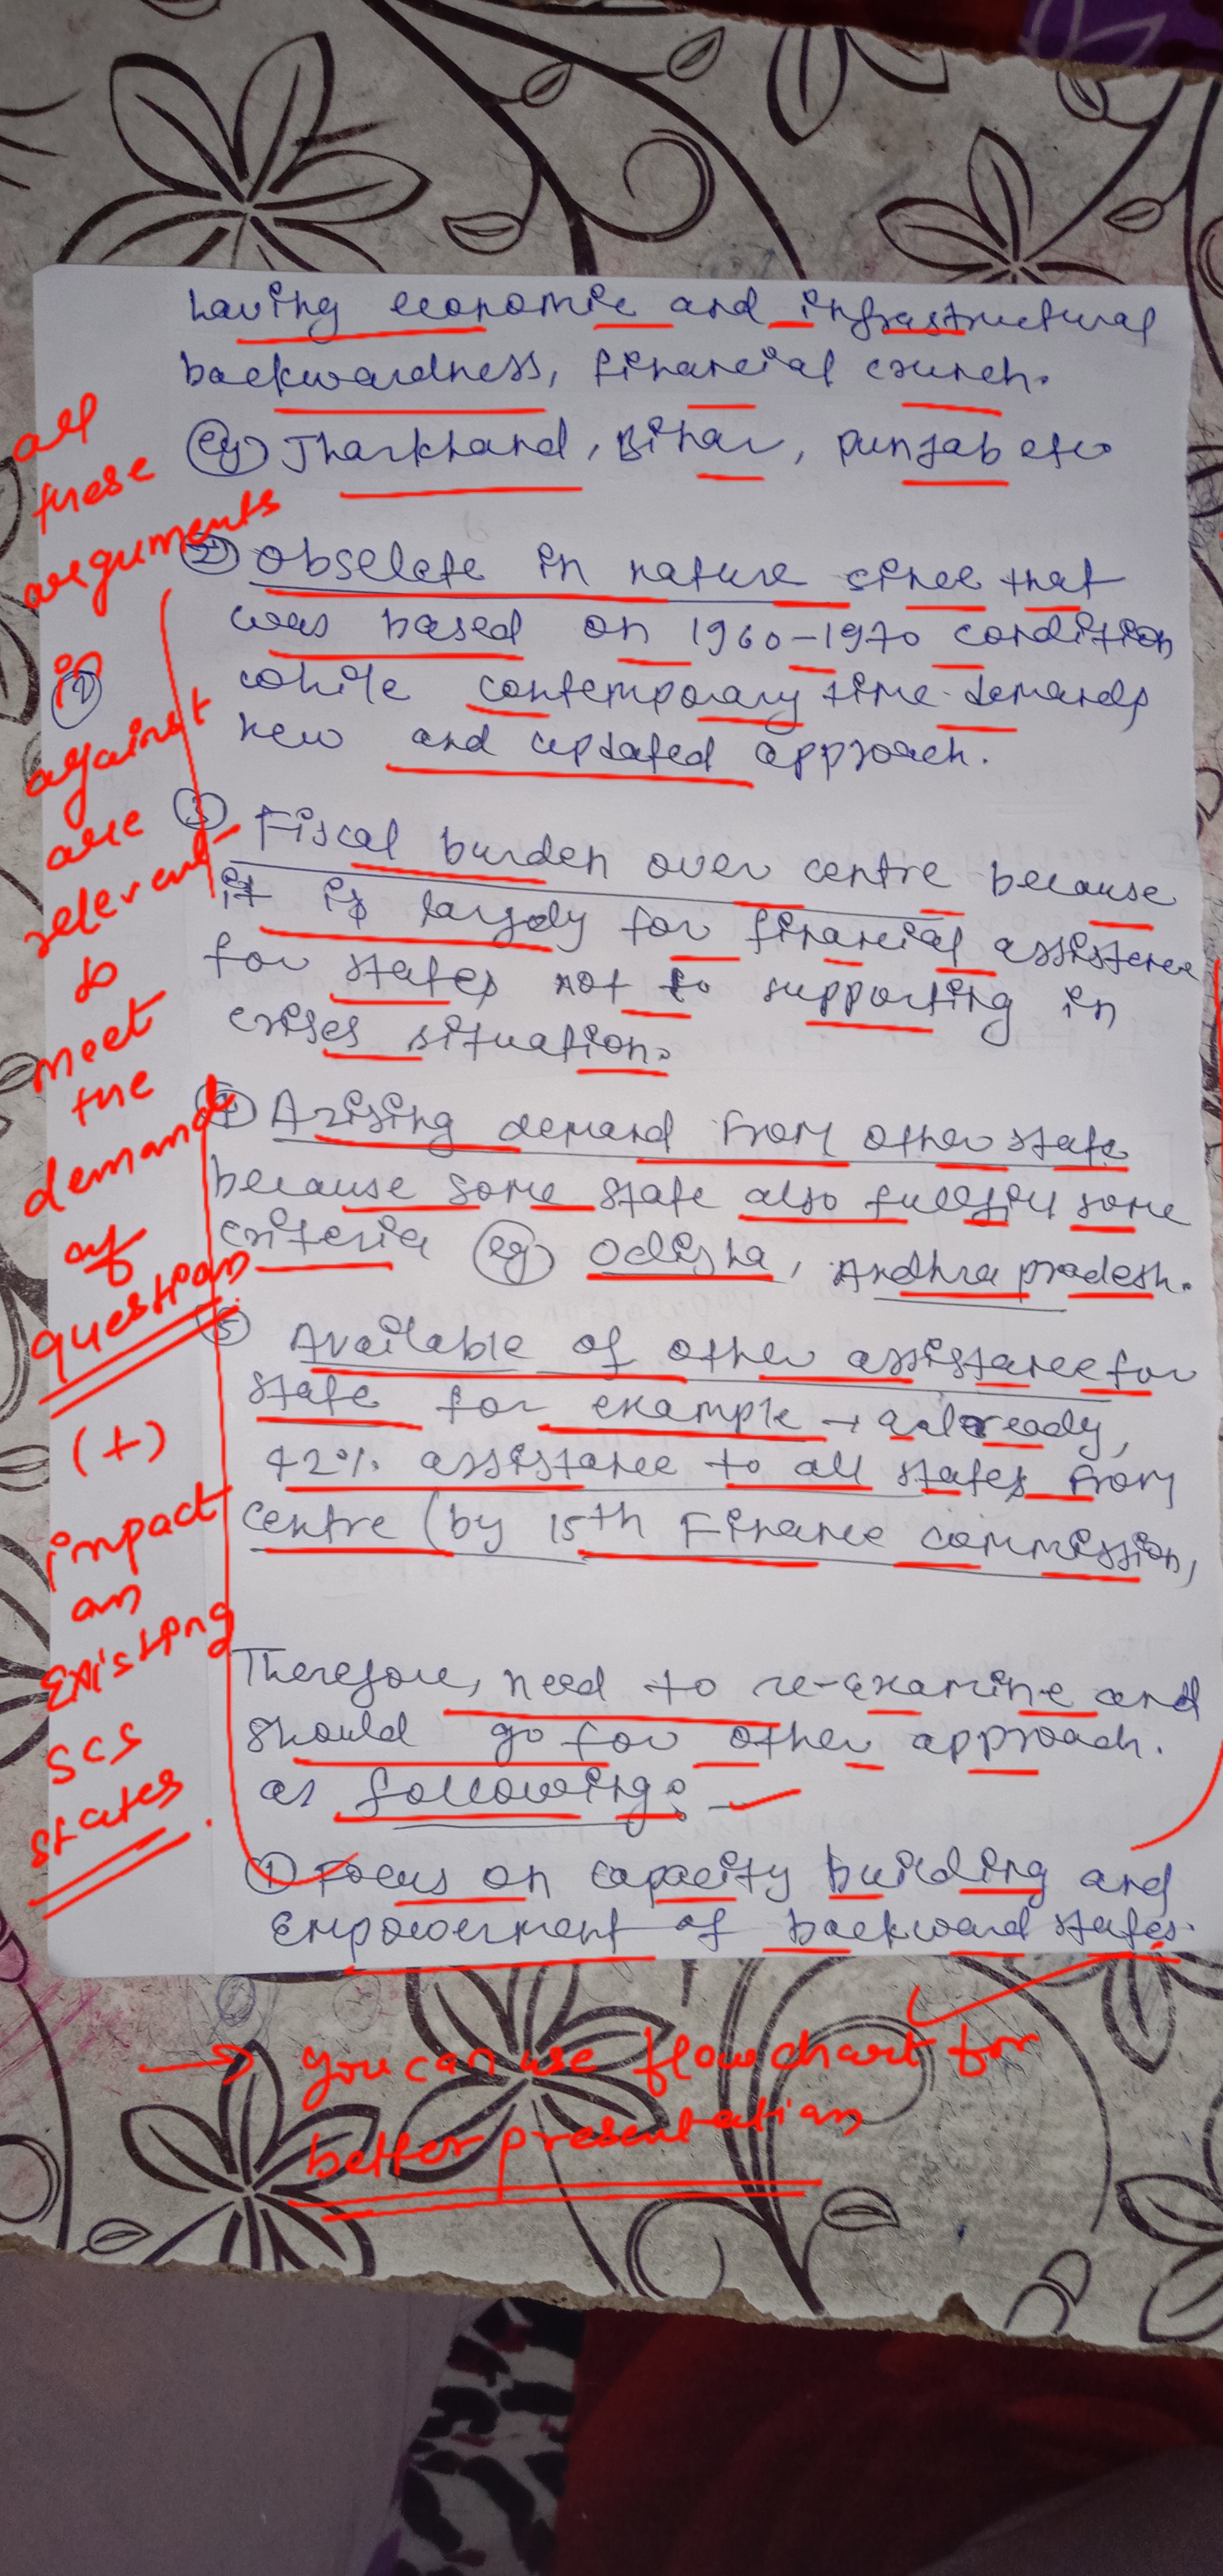 having economic and infrastructural
backwardness, financial crunch.
(eg) Jharkhand, Bihar, punjab etc
② obselete in nature since that
was based on 1960-1970 condition
while contemporary time demands
new and updated approach.
③ Fiscal burden over centre because
it is largely for financial assistence
for states not to supporting in
crises situation.
④ Arising demand from other state
because some state also fullfill some
criteria (eg) Odisha, Andhra pradesh.
⑤ Available of other assistance for
state for example → already,
42% assistance to all states from
centre (by 15th Finance commission,
Therefore, need to re-examine and
should go for other approach.
as following:
① Focus on capacity building and
Empowerment of backward states.
all
these
arguments
in
②
against
are
relevant
to
meet
the
demand
of
question
(+)
impact
on
Existing
SCS
states
→ you can use flowchart for
better presentation